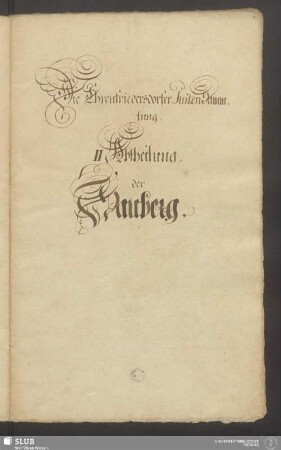 Die Ehrenfriedersdorfer Suiten Samm,
lung.
II Abtheilung.
der
Sauberg.
SLUB
Wir führen Wissen.